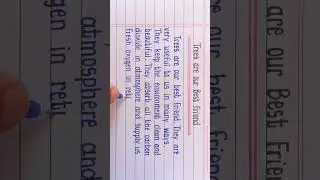 Trees are our Best Friend
Trees are our best friend. They are
very useful to us in many ways.
They keep the environment clean and
beautiful. They absorb all the carbon
dioxide in atmosphere and supply us
fresh oxygen in retu
are our Best Frien
our best friend
atmosphere and
in retu